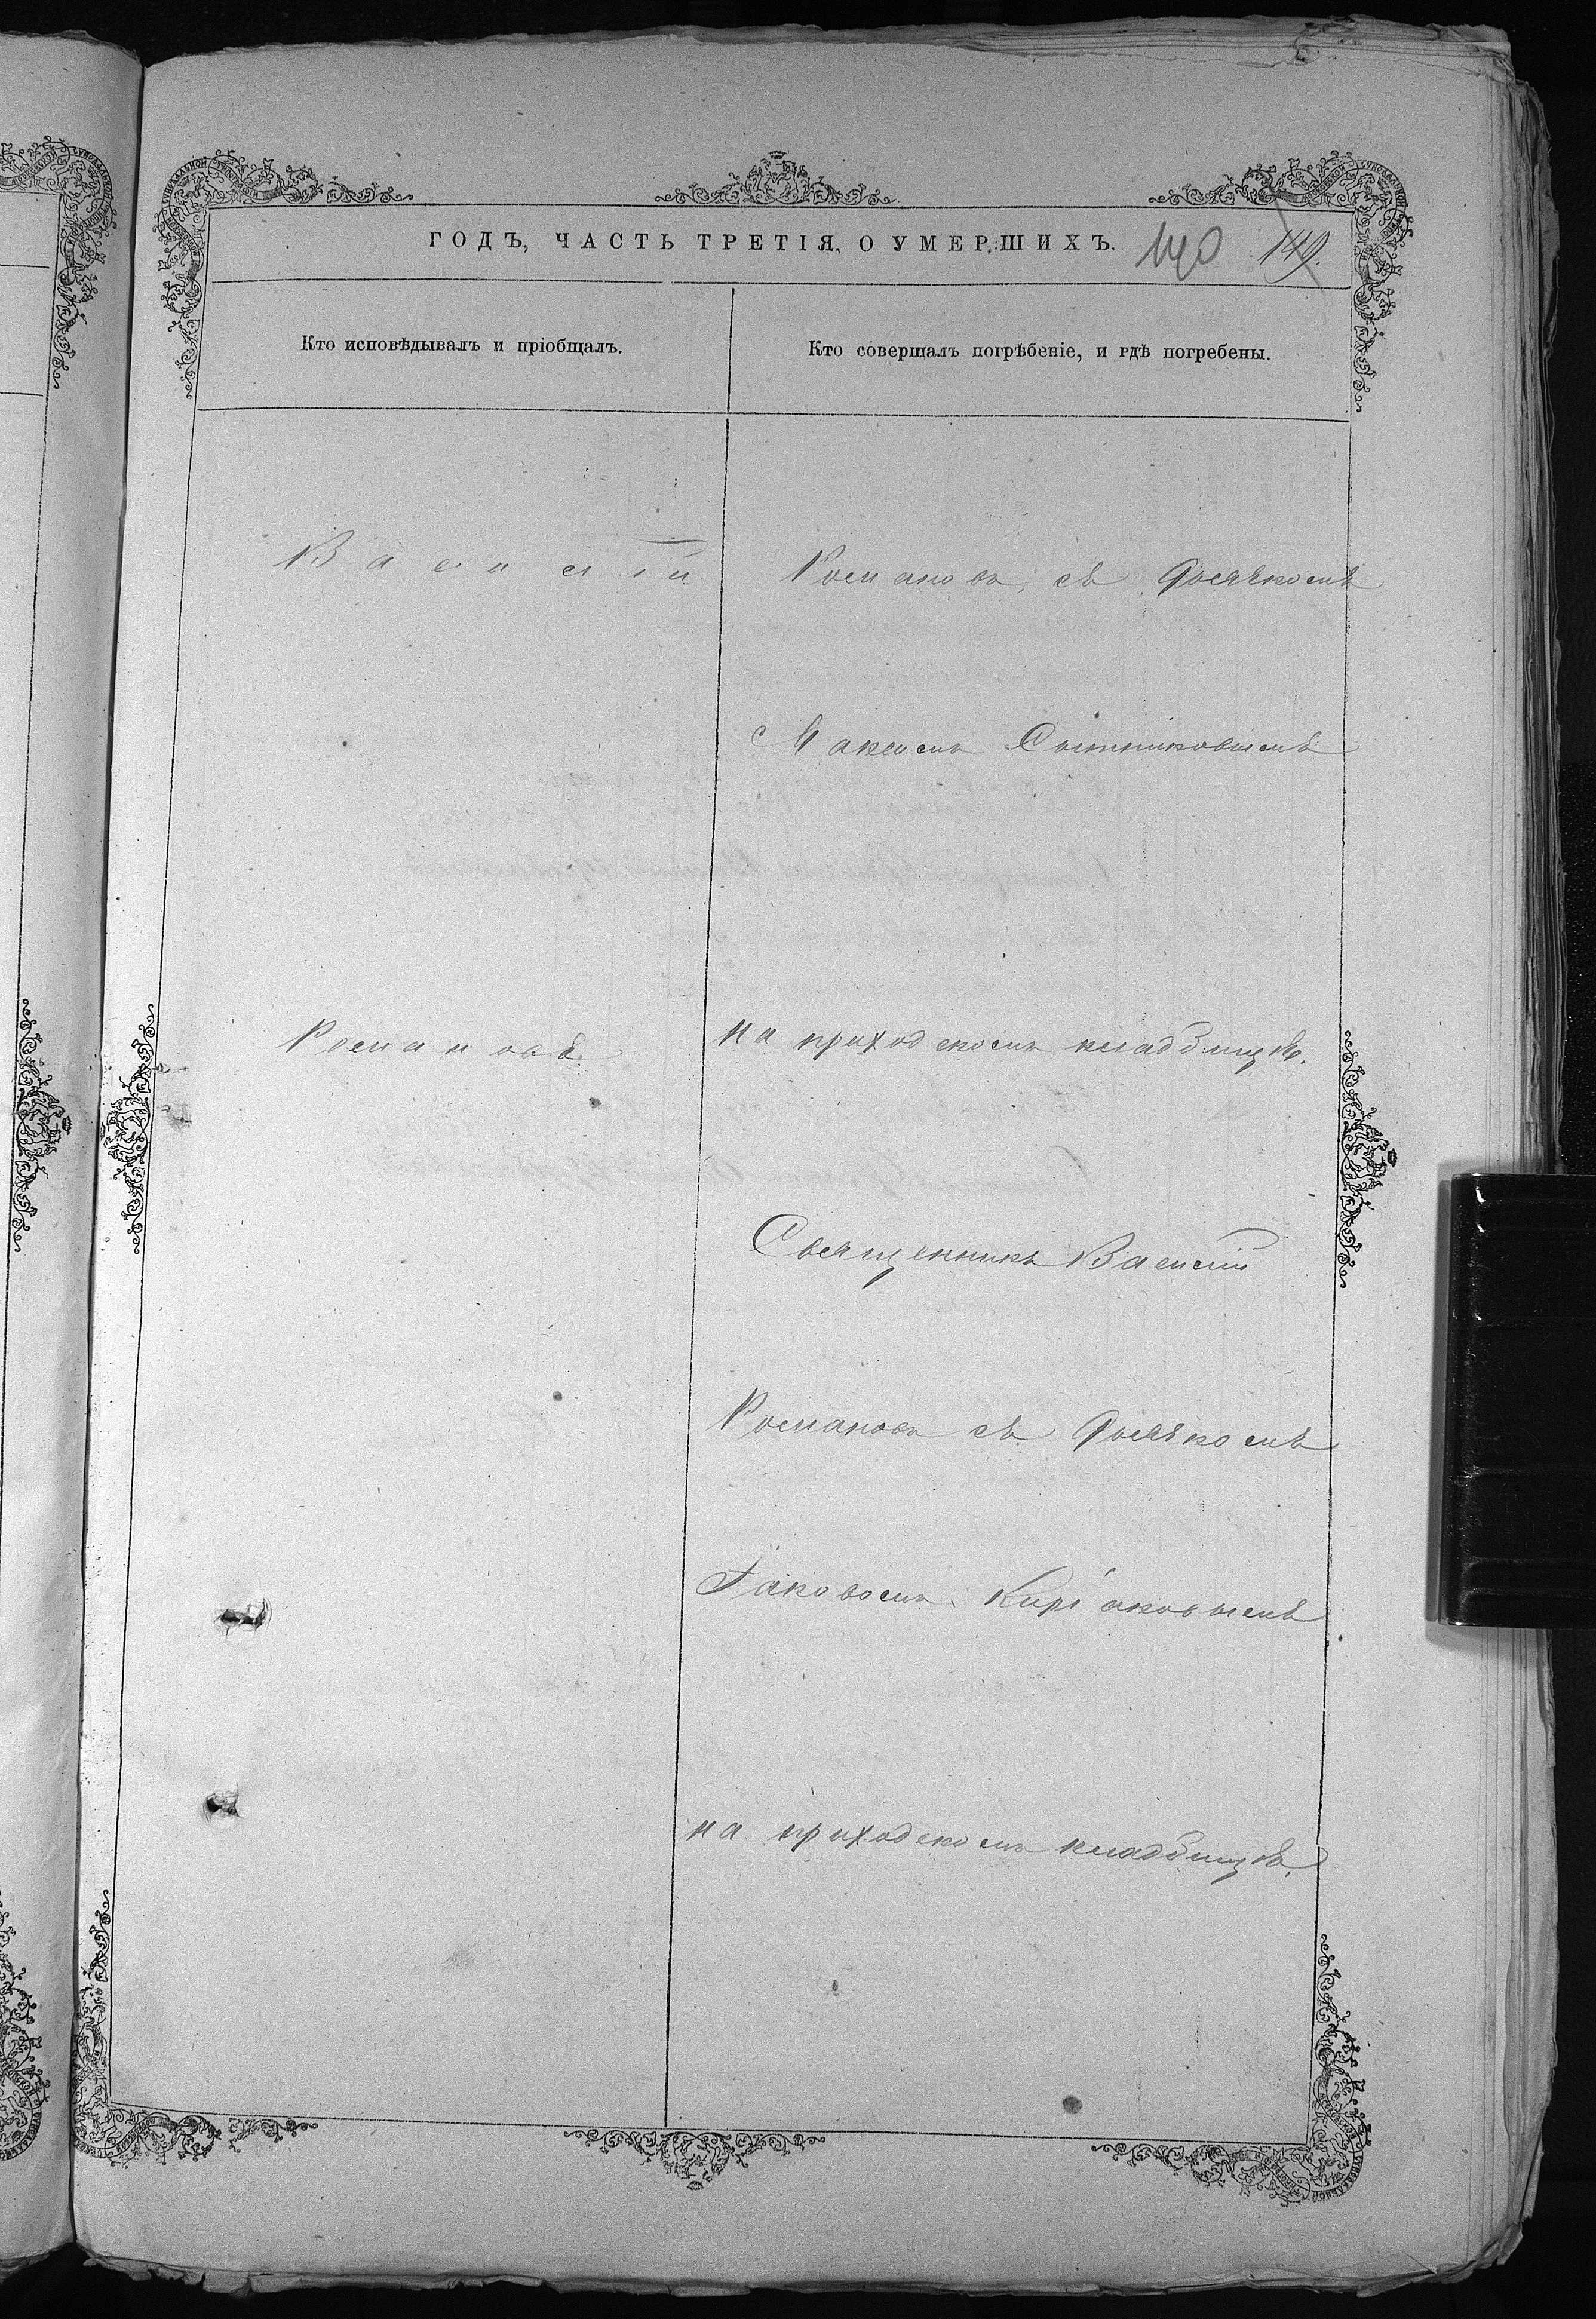 ГОДЪ, ЧАСТЬ ТРЕТІЯ, О УМЕРШИХЪ.
140 149.
Кто исповѣдывалъ и пріобщалъ.
Кто совершалъ погрѣбеніе, и гдѣ погребены.
Василій
Романовъ.
Романовъ съ дьячкомъ
Максимъ Сытниковымъ
на приходскомъ кладбищѣ.
Священникъ Василій
Романовъ съ дьячкомъ
Іаковомъ Киріаковымъ
на приходскомъ кладбищѣ.